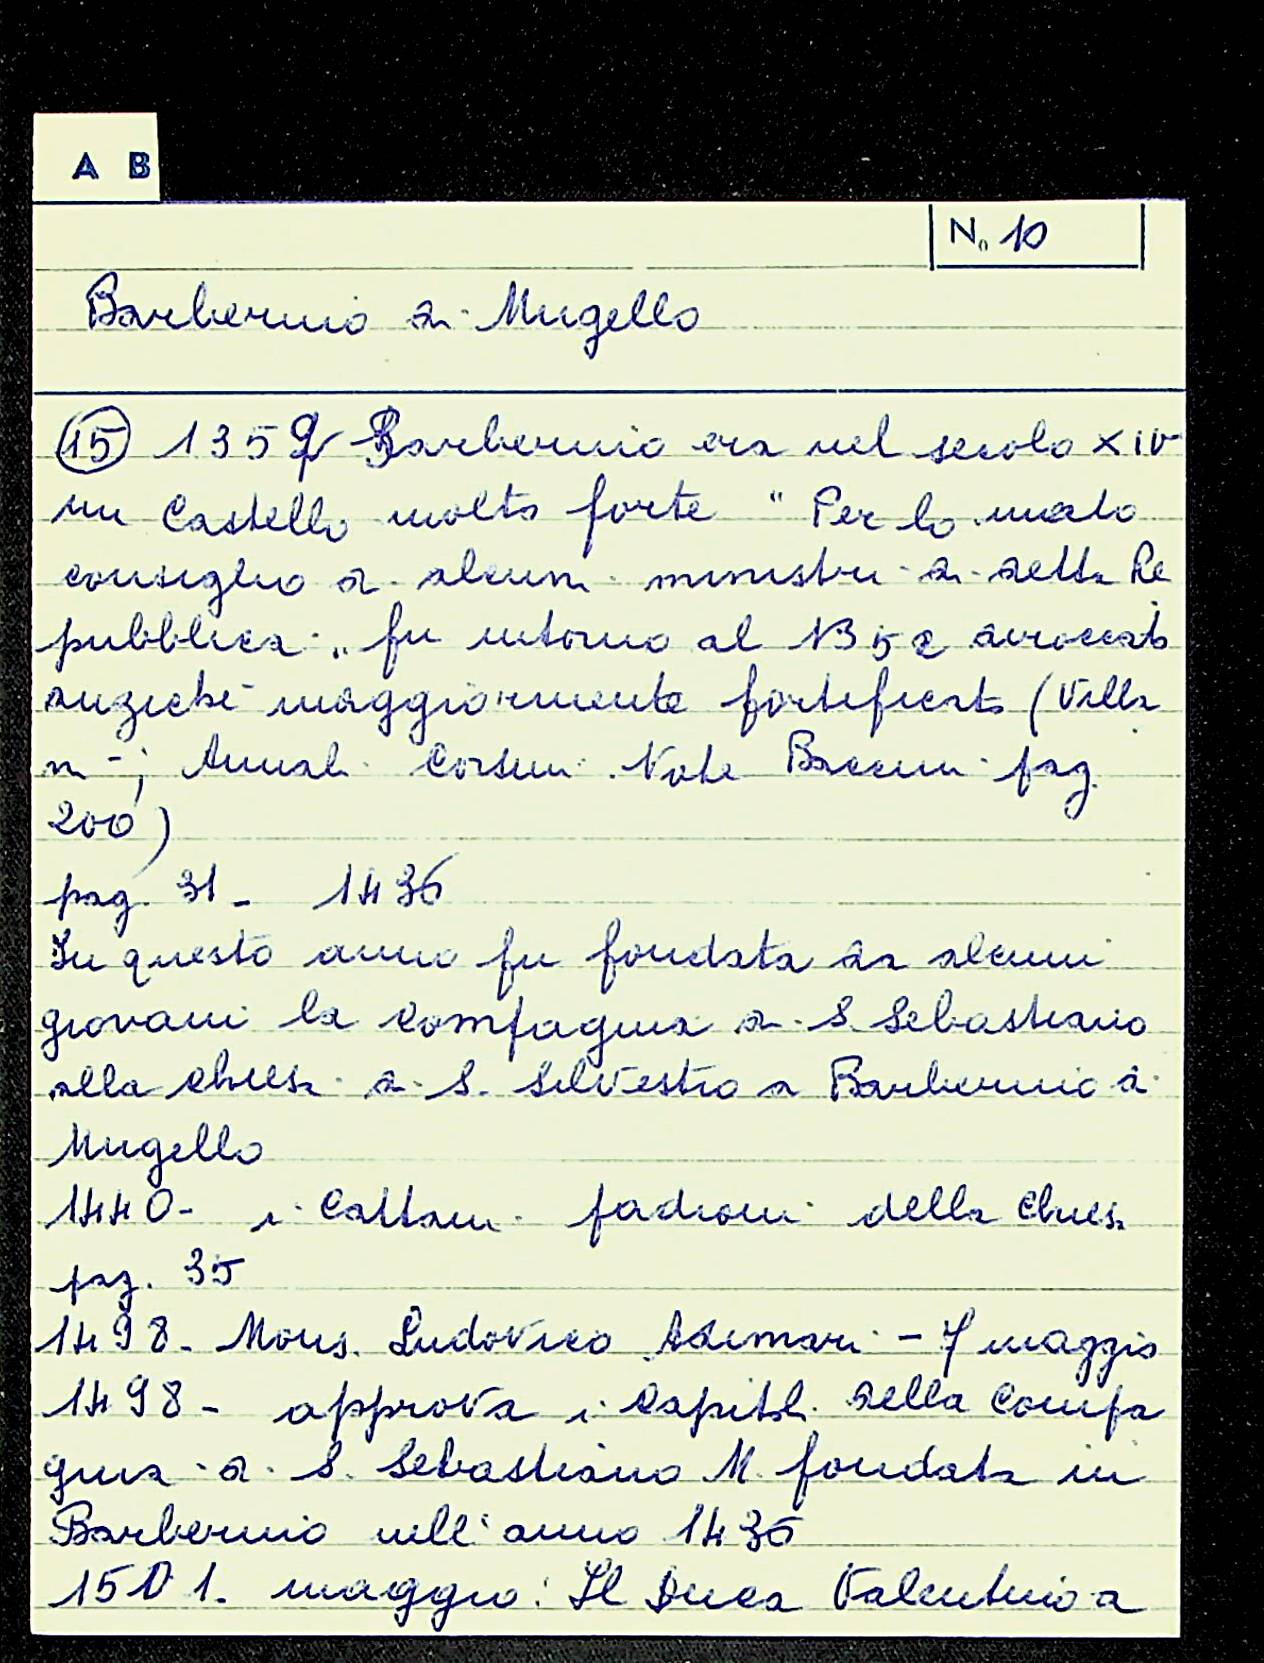 A B
No 10
Barberino di Mugello
15 1352 Barberino era nel secolo XIV
un Castello molto forte " Per lo malo
consiglio di alcuni ministri di detta Re
pubblica „ fu intorno al 1352 diroccato
anzichè maggiormente fortificato (Villa
ni -; Annali Corsini Note Baccini pag.
200)
pag. 31 - 1436
In questo anno fu fondata da alcuni
giovani la compagnia di S. Sebastiano
alla chiesa di S. Silvestro a Barberino di
Mugello
1440 - i Cattani padroni della Chiesa
pag. 35
1498 - Mons. Ludovico Adimari - 7 maggio
1498 - approva i capitoli della Compa
gnia di S. Sebastiano M. fondata in
Barberino nell'anno 1436
1501. maggio: Il Duca Valentino a